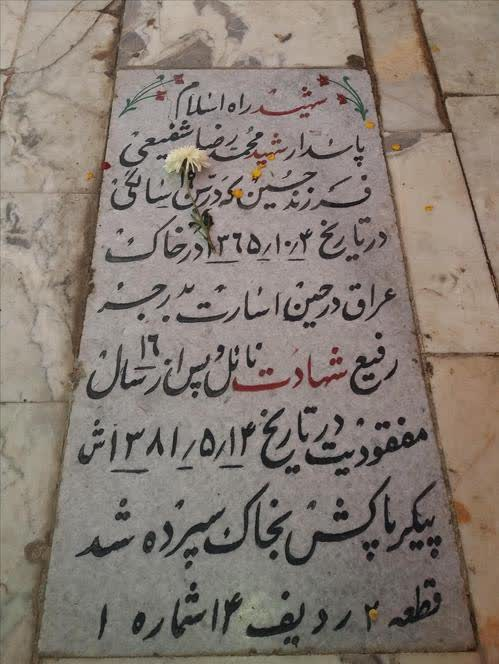 شهید راه اسلام
پاسدار شهید محمدرضا شفیعی
فرزند حسین که در سن سالگی
در تاریخ ۱۳۶۵/۱۰/۴ در خاک
عراق در حین اسارت بدرجه
رفیع شهادت نائل و پس از ۱۶ سال
مفقودیت در تاریخ ۱۳۸۱/۵/۱۴ ش
پیکر پاکش بخاک سپرده شد
قطعه ۲ ردیف ۱۴ شماره ۱